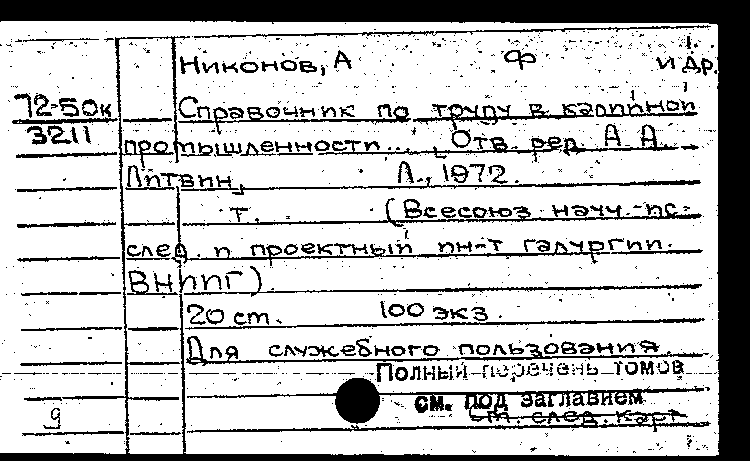 Никонов, А Ф и др.
72-50к Справочник по труду в калийной
3211
промышленности... Отв. ред. А. А.
Литвин, Л., 1972.
т. (Всесоюз. науч.-ис-
след. и проектный ин-т галургии.
ВНИИГ).
20 cm. 100 экз.
Для служебного пользования
Полный перечень томов
см. под заглавием
см. след. карт
9